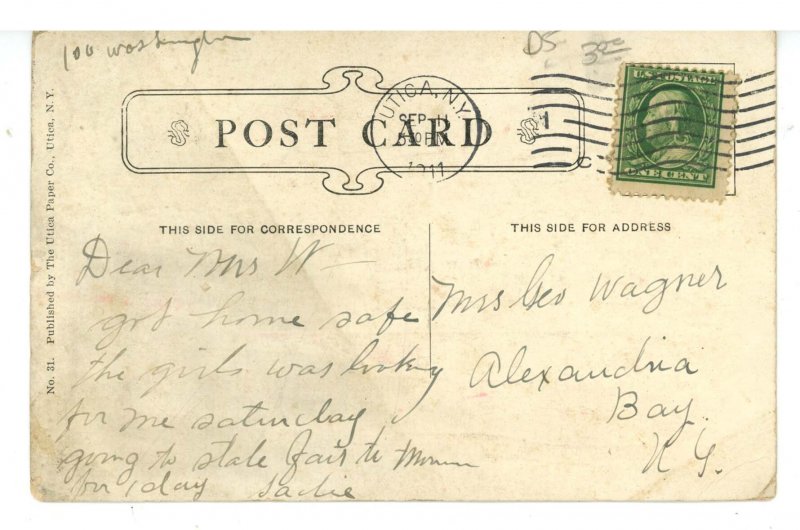 100 Washington
DS
300
No. 31. Published by The Utica Paper Co., Utica, N.Y.
POST CARD
UTICA, N.Y.
SEP 11
PM
1911
1
C
U.S. POSTAGE
ONE CENT
THIS SIDE FOR CORRESPONDENCE
THIS SIDE FOR ADDRESS
Dear Mrs W—
got home safe
the girls was looking
for me saturday
going to state fair
for 1 day Sadie
Mrs Geo Wagner
Alexandria
Bay
N.Y.